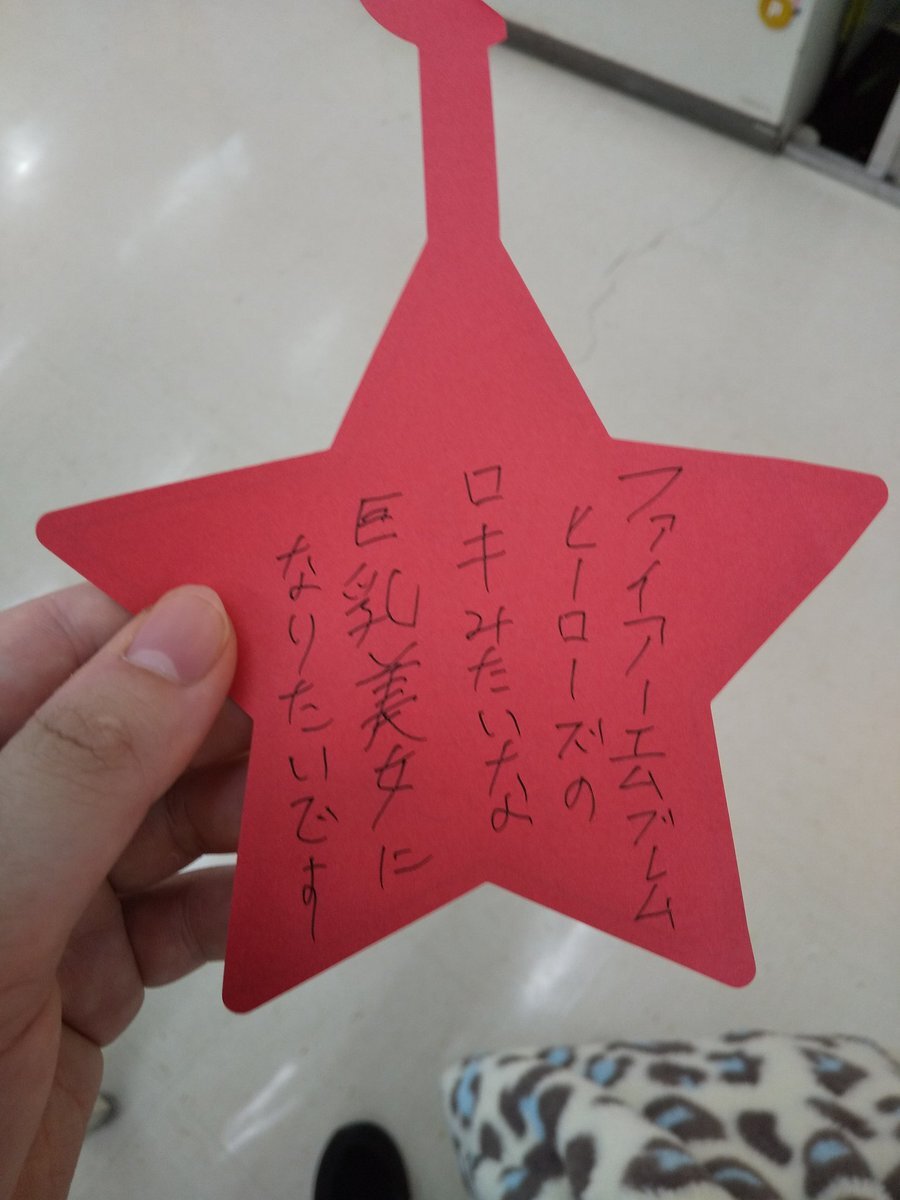 ファイアーエムブレム
ヒーローズの
ロキみたいな
巨乳美女に
なりたいです
P